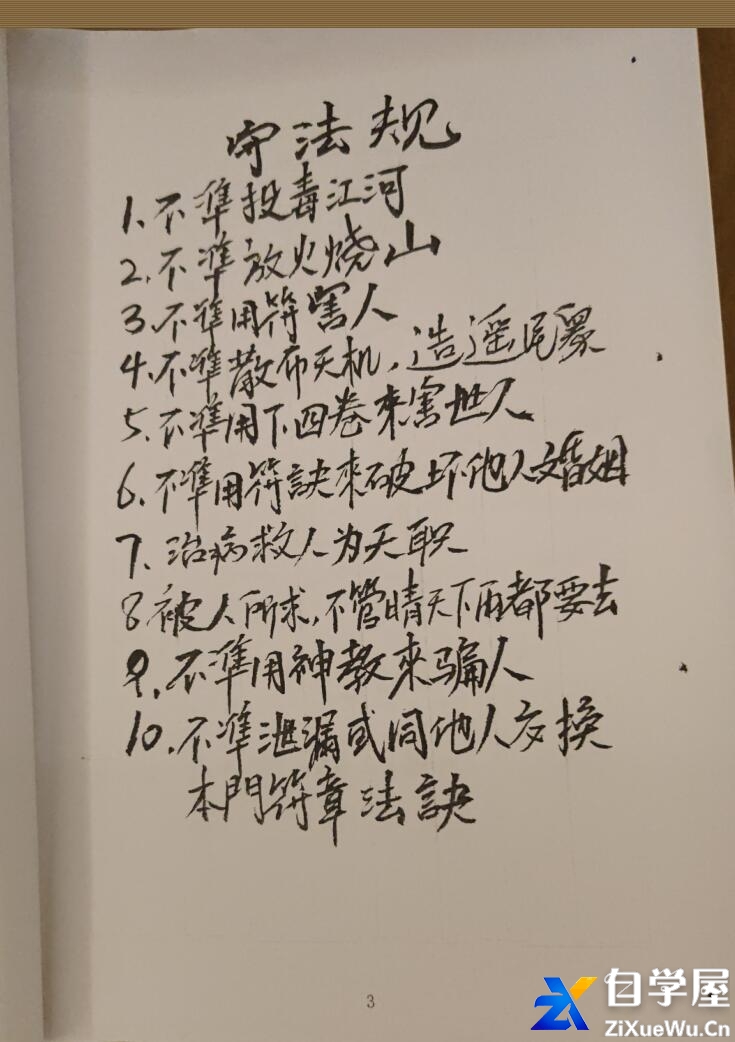 守法规
1、不準投毒江河
2、不準放火烧山
3、不準用符害人
4、不準散布天机,造遥惑眾
5、不準用下四卷來害世人
6、不準用符訣來破坏他人婚姻
7、治病救人为天职
8被人所求,不管晴天下雨都要去
9、不準用神教來骗人
10、不準泄漏或同他人交换
本門符章法訣
3
自学屋
ZiXueWu.Cn